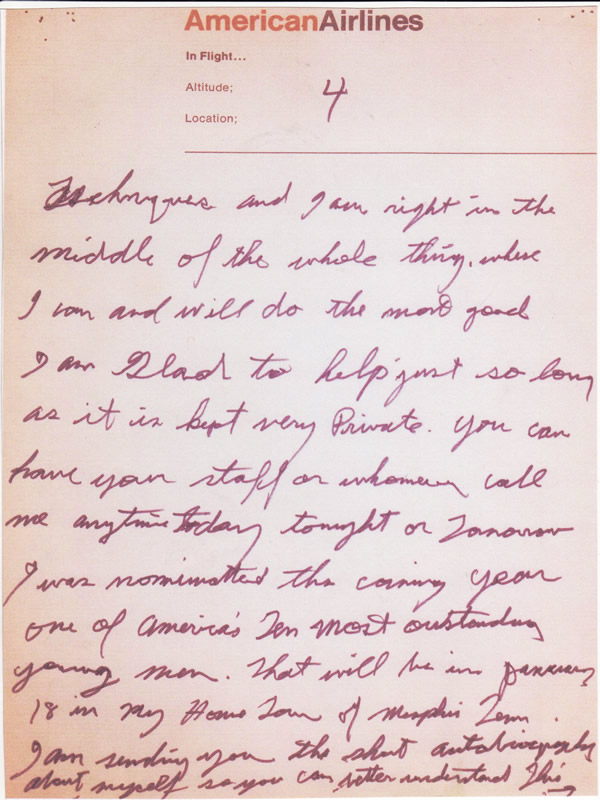 AmericanAirlines
In Flight...
Altitude;
4
Location;
Techniques and I am right in the
middle of the whole thing, where
I can and will do the most good
I am Glad to help just so long
as it is kept very Private. You can
have your staff or whomever call
me anytime today tonight or Tomorrow
I was nominated the coming year
one of America's Ten most outstanding
young men. That will be in January
18 in my Home Town of Memphis Tenn.
I am sending you the short autobiography
about myself so you can better understand This